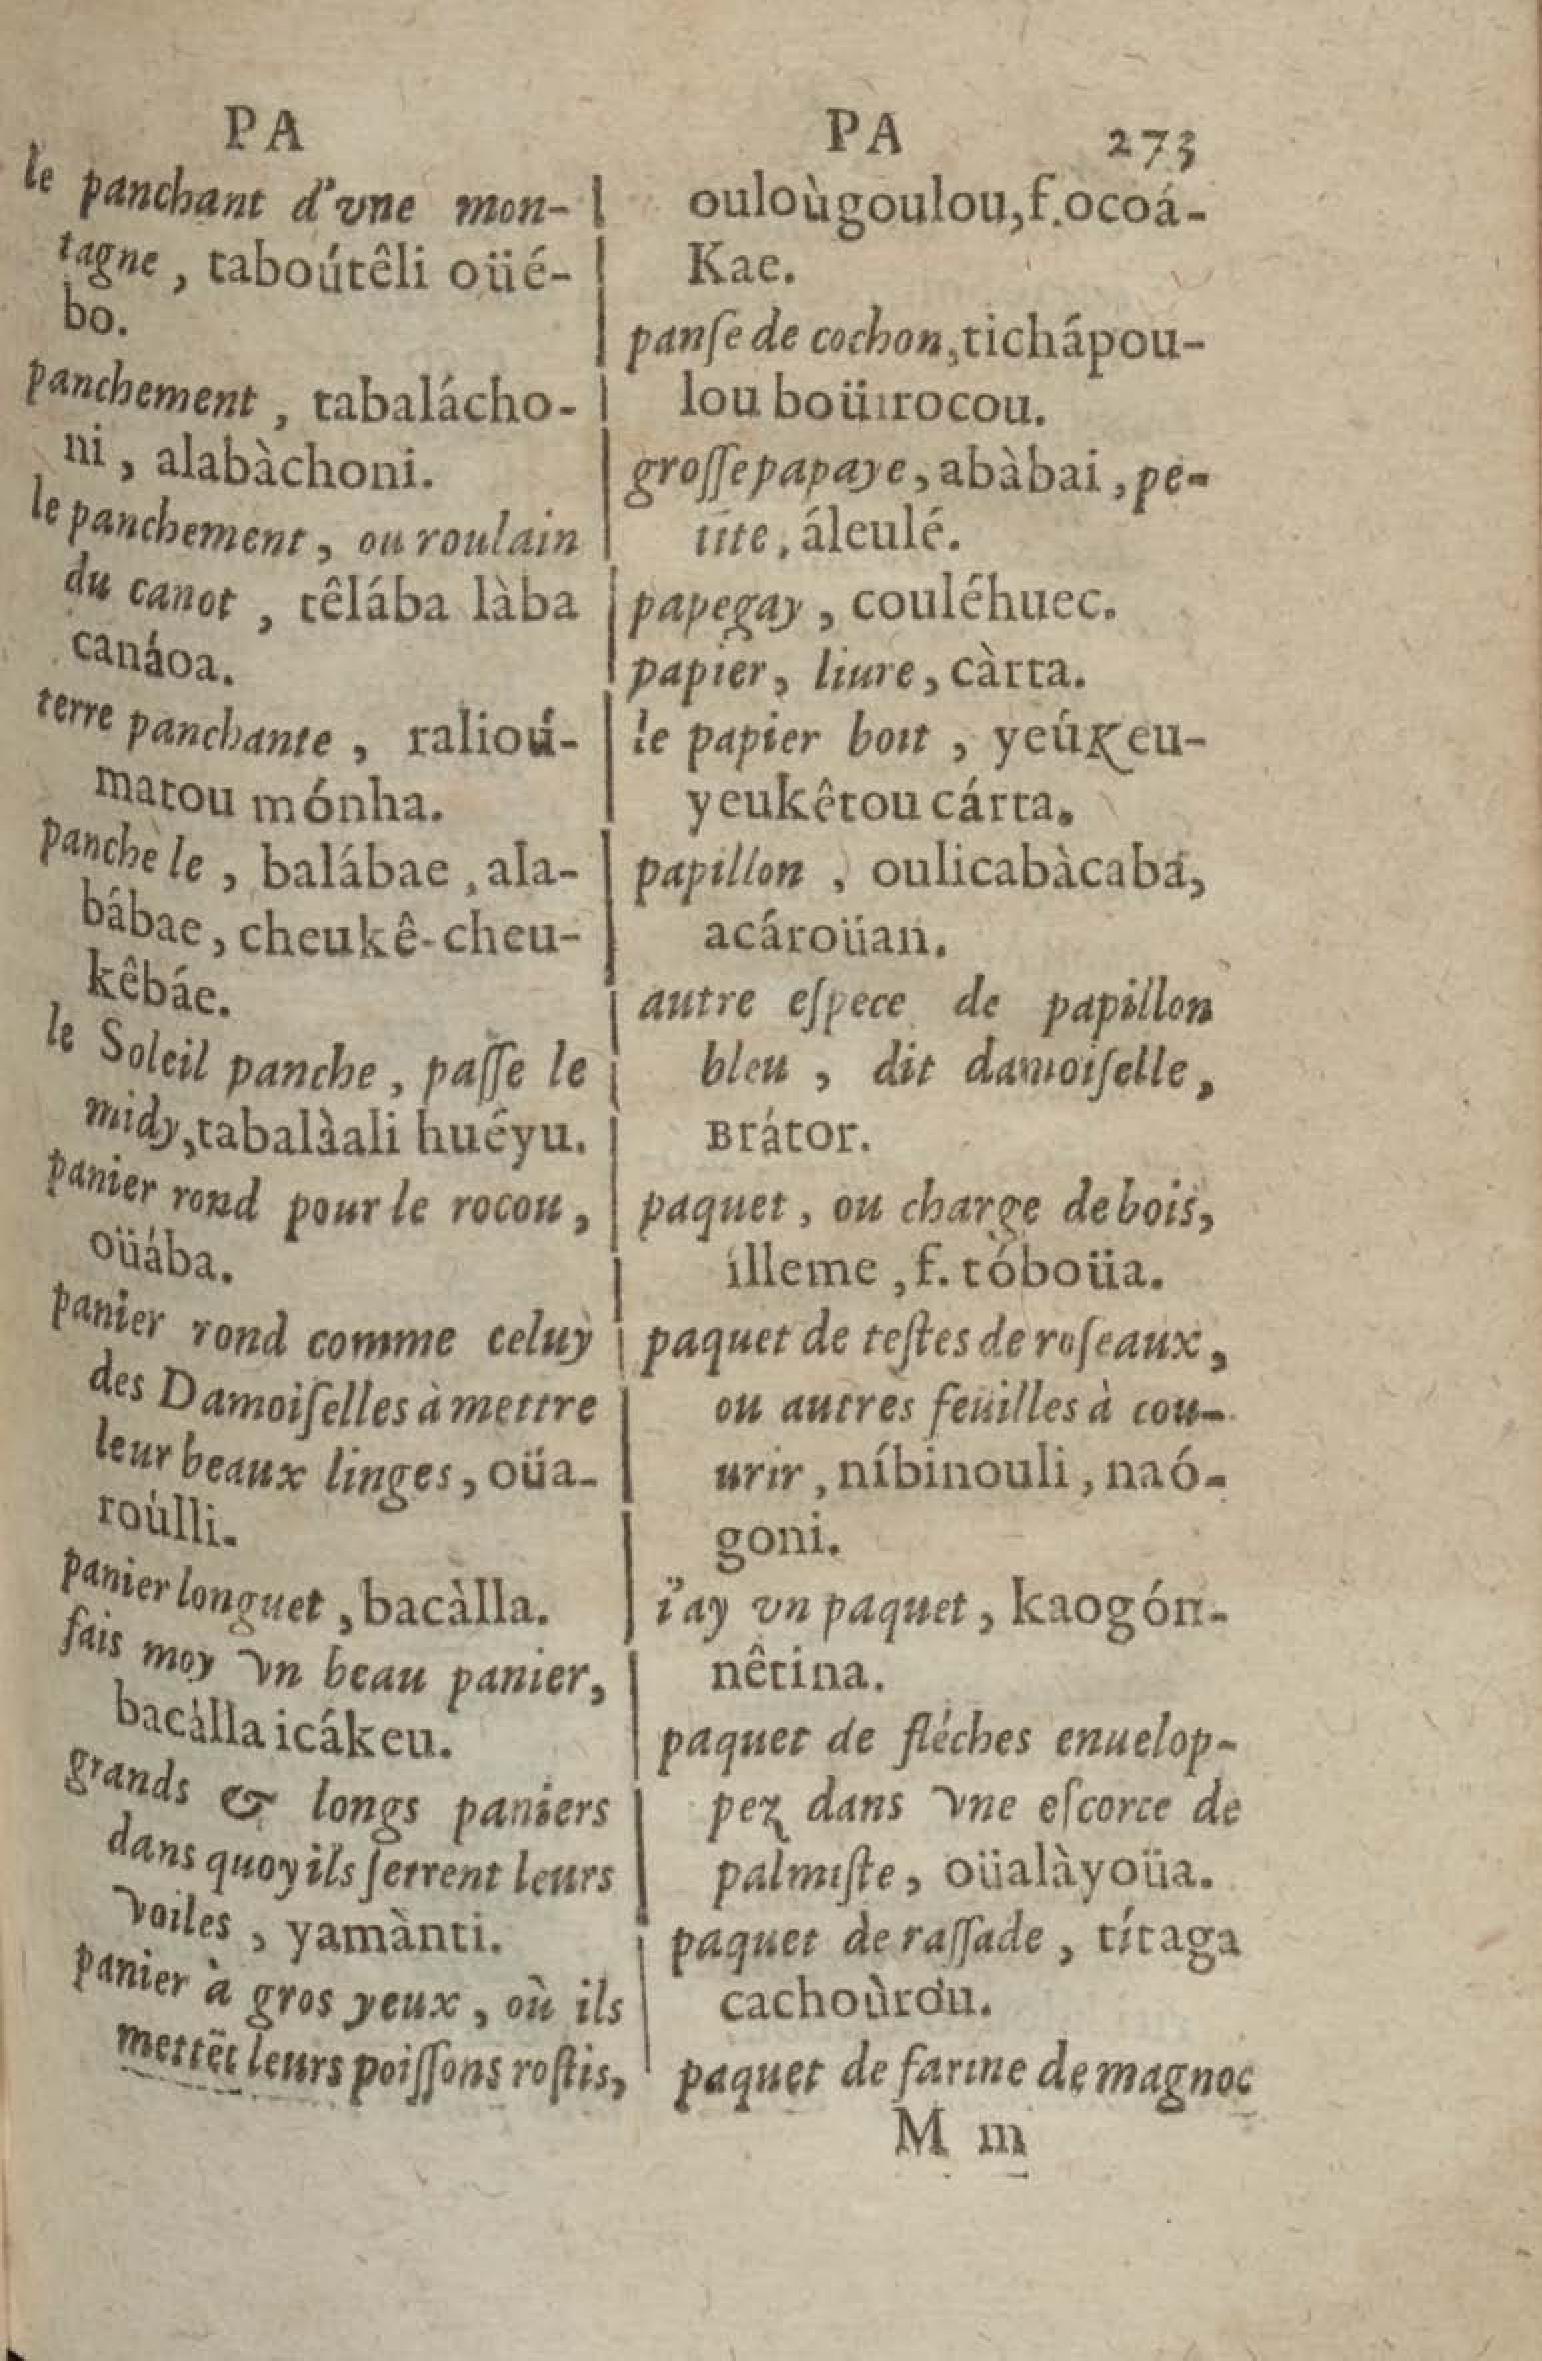 PA
le panchant d'vne mon-
tagne, taboútêli oüé-
bo.
panchement, tabalácho-
ni, alabàchoni.
le panchement, ou roulain
du canot, têlába làba
canáoa.
terre panchante, élalioú-
matou mónha.
panche le, balábae, ala-
bábae, cheukê-cheu-
kêbáe.
le Soleil panche, paſſe le
midy, tabalàali huéyu.
panier rond pour le rocou,
oüába.
panier rond comme celuy
des Damoiſelles à mettre
leur beaux linges, oüa-
roùlli.
panier longuet, bacàlla.
fais moy vn beau panier,
bacàlla icákeu.
grands & longs paniers
dans quoy ils ſerrent leurs
voiles, yamànti.
panier à gros yeux, où ils
mettẽt leurs poiſſons roſtis,
PA 273
ouloùgoulou, f. ocoá-
Kae.
panſe de cochon, tichápou-
lou boüirocou.
groſſe papaye, abàbai, pe-
tite, áleulé.
papegay, couléhuec.
papier, liure, càrta.
le papier boit, yeúKeu-
yeukêtou cárta.
papillon, oulicabàcabá,
acároüan.
autre eſpece de papillon
bleu, dit damoiſelle,
Brátor.
paquet, ou charge de bois,
illeme, f. tóboüa.
paquet de teſtes de roſeaux,
ou autres feuilles à cou-
urir, níbinouli, naó-
goni.
i'ay vn paquet, kaogón-
nêtina.
paquet de fléches enuelop-
pez dans vne eſcorce de
palmiſte, oüalàyoüa.
paquet de raſſade, títaga
cachoùrou.
paquet de farine de magnoc
M m